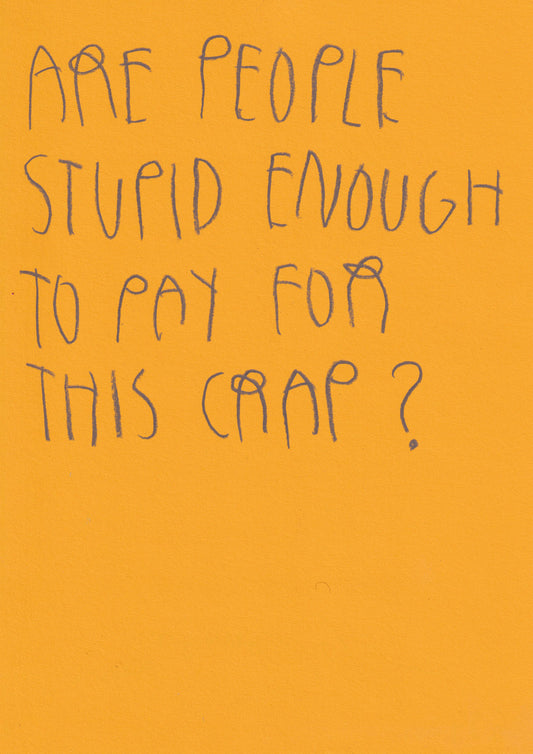 ARE PEOPLE
STUPID ENOUGH
TO PAY FOR
THIS CRAP?